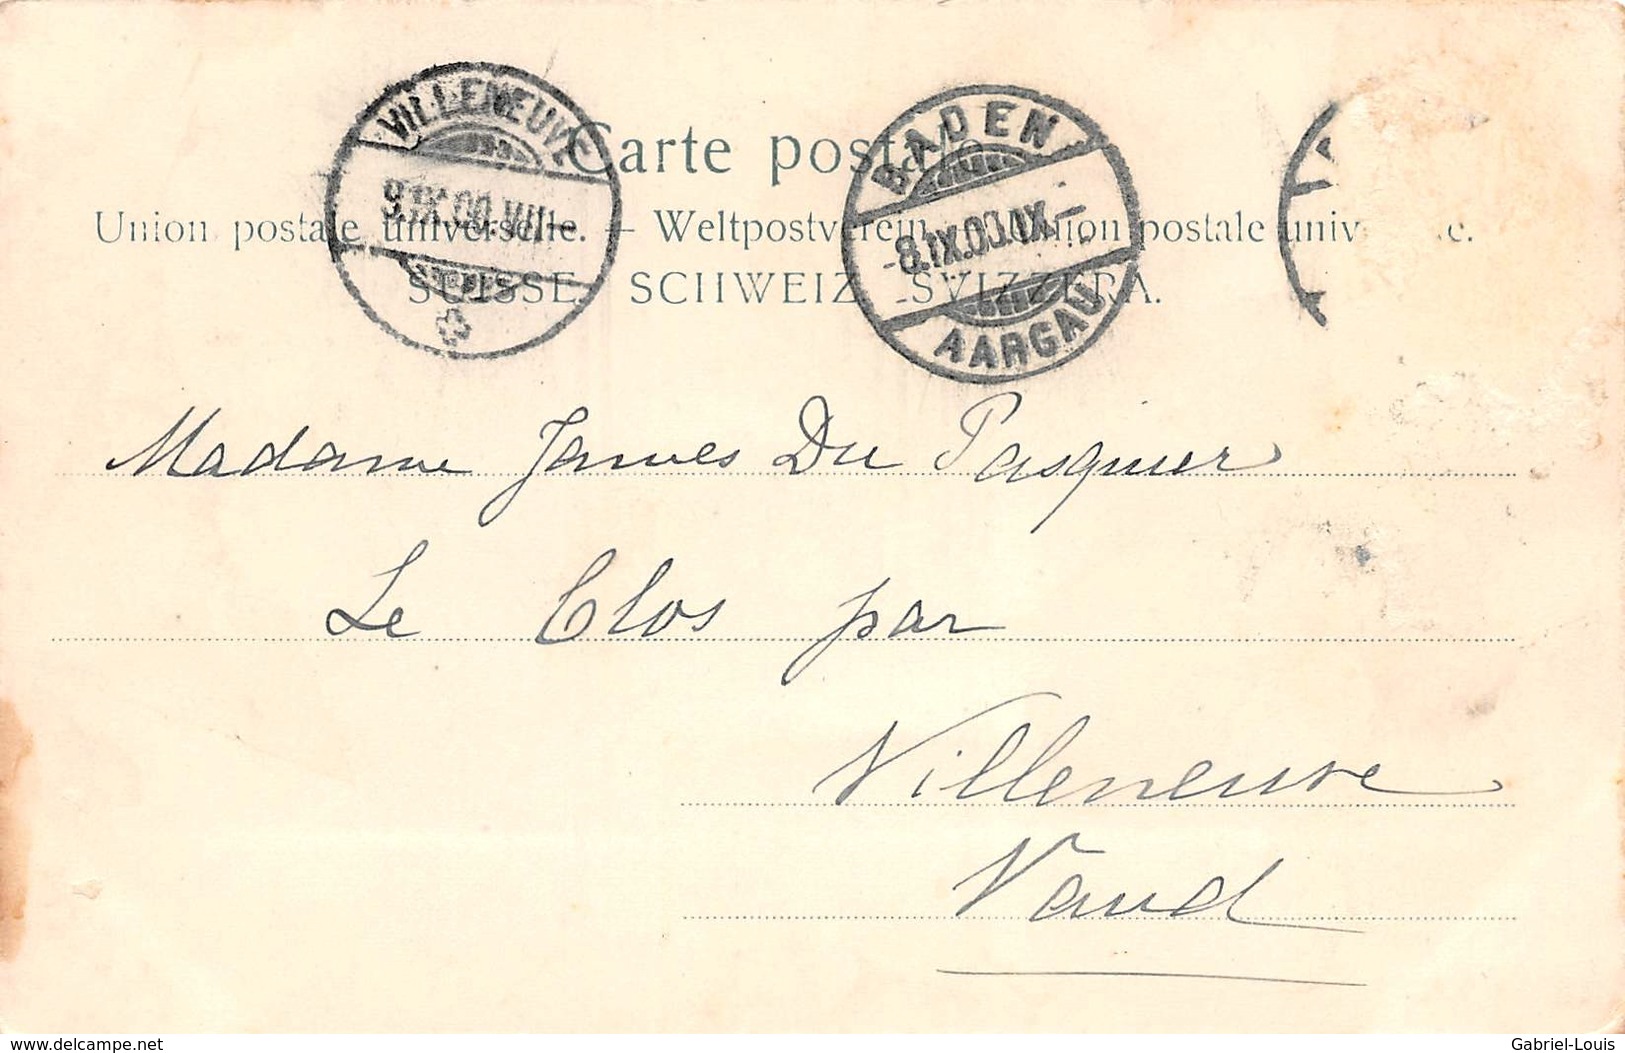 VILLENEUVE
9.IX.00.VIII–
BADEN
-8.IX.00.IX–
AARGAU
Carte postale
Union postale universelle. – Weltpostverein. – Union postale
SUISSE. SCHWEIZ. SVIZZERA.
Madame James Du Pasquier
Le Clos par
Villeneuve
Vaud
www.delcampe.net
Gabriel-Louis